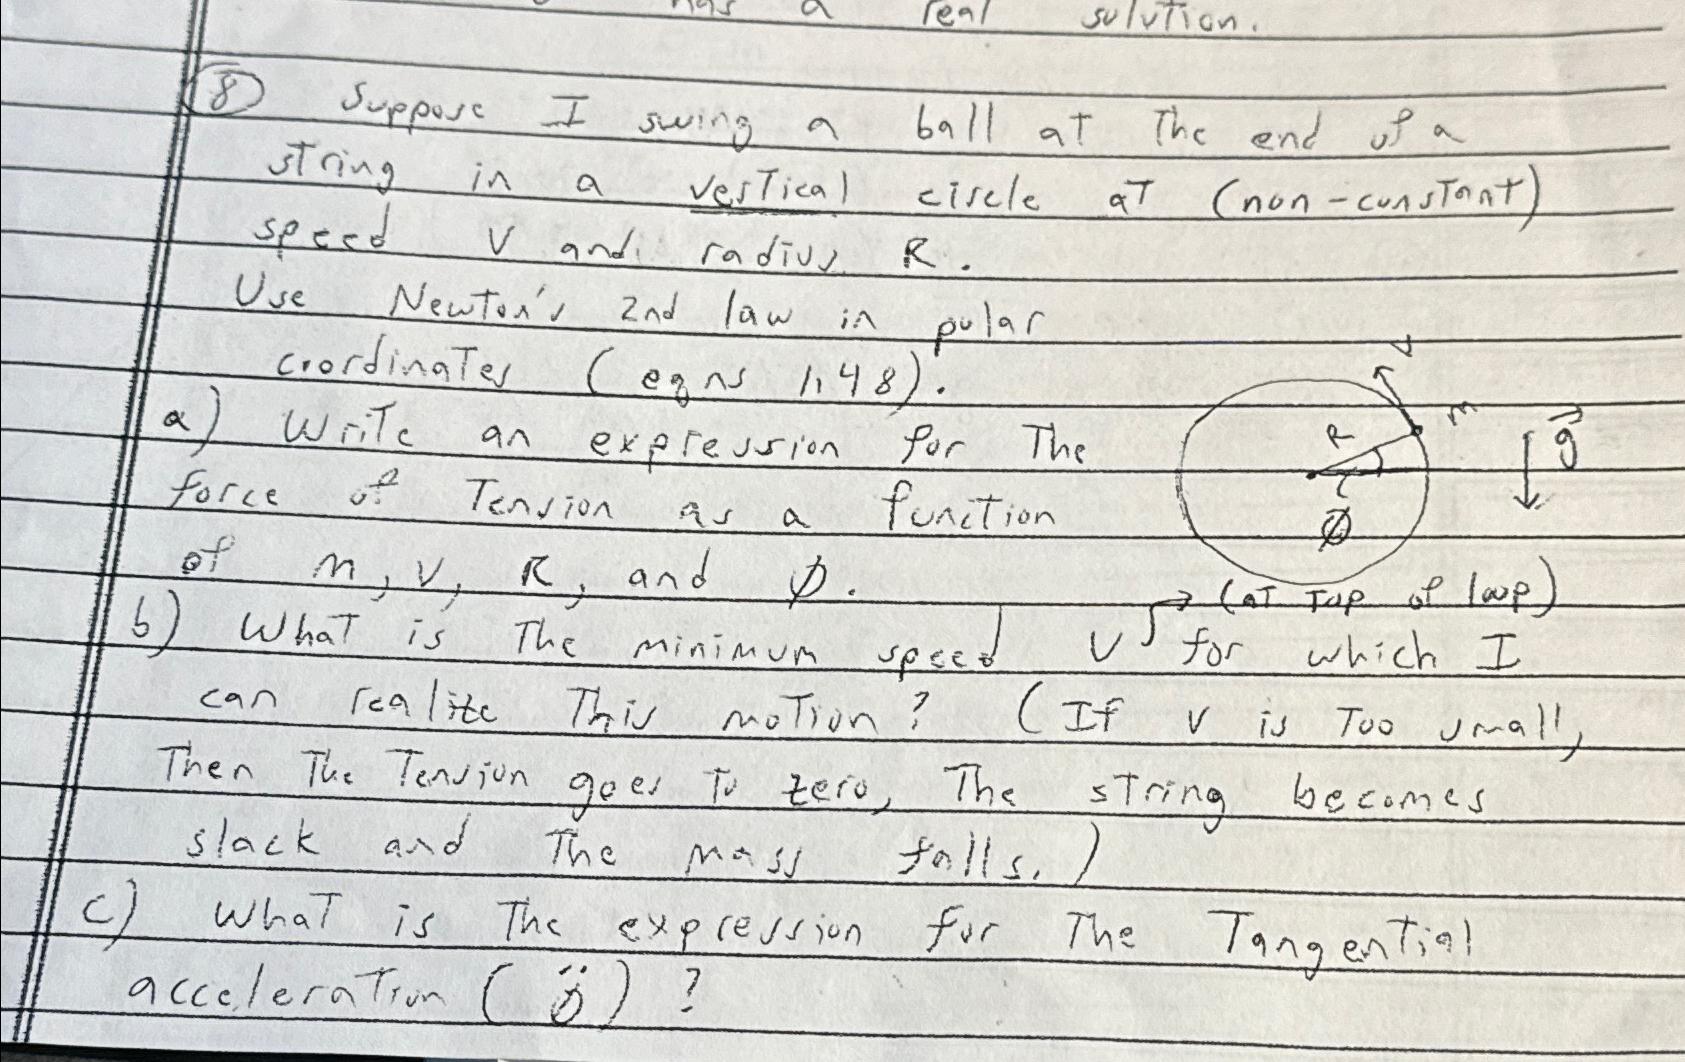 has a real solution.
⑧ Suppose I swing a ball at the end of a
string in a vertical circle at (non-constant)
speed v and radius R.
Use Newton's 2nd law in polar
coordinates (eqns 1.48).
a) Write an expression for the
force of Tension as a function
of m, v, R, and φ.
v
m
R
g
φ
(at top of loop)
b) What is the minimum speed v for which I
can realize this motion? (If v is too small,
Then the Tension goes to zero, The string becomes
slack and the mass falls.)
c) What is the expression for the Tangential
acceleration (φ̈)?